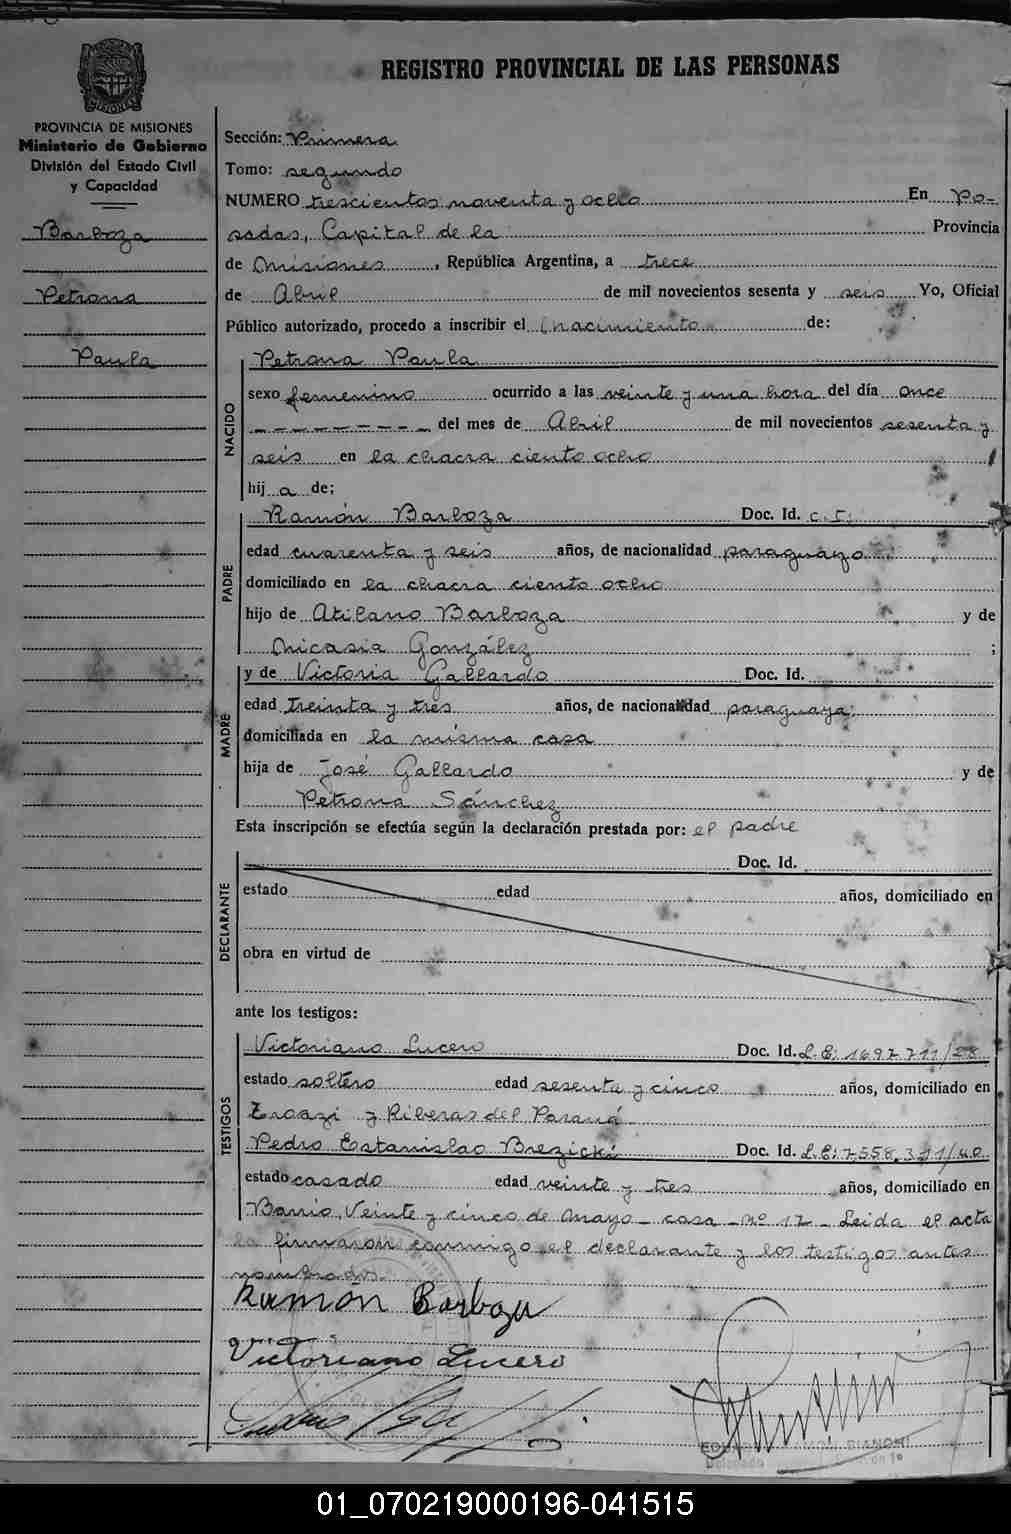 REGISTRO PROVINCIAL DE LAS PERSONAS
MISIONES
PROVINCIA DE MISIONES
Ministerio de Gobierno
División del Estado Civil
y Capacidad
Barboza
Petrona
Paula
Sección: Primera
Tomo: segundo
NUMERO trescientos noventa y ocho En Po-
sadas, Capital de la Provincia
de Misiones, República Argentina, a trece
de Abril de mil novecientos sesenta y seis Yo, Oficial
Público autorizado, procedo a inscribir el nacimiento de:
NACIDO
Petrona Paula
sexo femenino ocurrido a las veinte y una hora del día once
--------- del mes de Abril de mil novecientos sesenta y
seis en la chacra ciento ocho
hij a de;
PADRE
Ramón Barboza Doc. Id. C. I.
edad cuarenta y seis años, de nacionalidad paraguayo
domiciliado en la chacra ciento ocho
hijo de Atilano Barboza y de
Micasia González ;
MADRE
y de Victoria Gallardo Doc. Id.
edad treinta y tres años, de nacionalidad paraguaya
domiciliada en la misma casa
hija de José Gallardo y de
Petrona Sánchez
Esta inscripción se efectúa según la declaración prestada por: el padre
DECLARANTE
Doc. Id.
estado edad años, domiciliado en
obra en virtud de
ante los testigos:
TESTIGOS
Victoriano Lucero Doc. Id. L.E: 1697711/28
estado soltero edad sesenta y cinco años, domiciliado en
y Riberas del Paraná
Pedro Estanislao Brezicki Doc. Id. L.E: 7.558.311/40
estado casado edad veinte y tres años, domiciliado en
Barrio Veinte y cinco de Mayo - casa - Nº 17 - Leida el acta
la firmaron conmigo el declarante y los testigos antes
nombrados.
Ramón Barboza
Victoriano Lucero
BIANCHI
Delegado
01_070219000196-041515